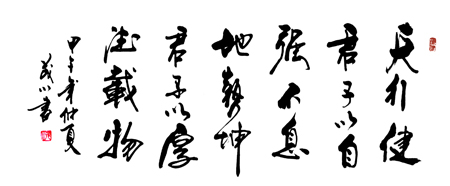 天行健
君子以自
强不息
地勢坤
君子以厚
德載物
甲午年仲夏
書